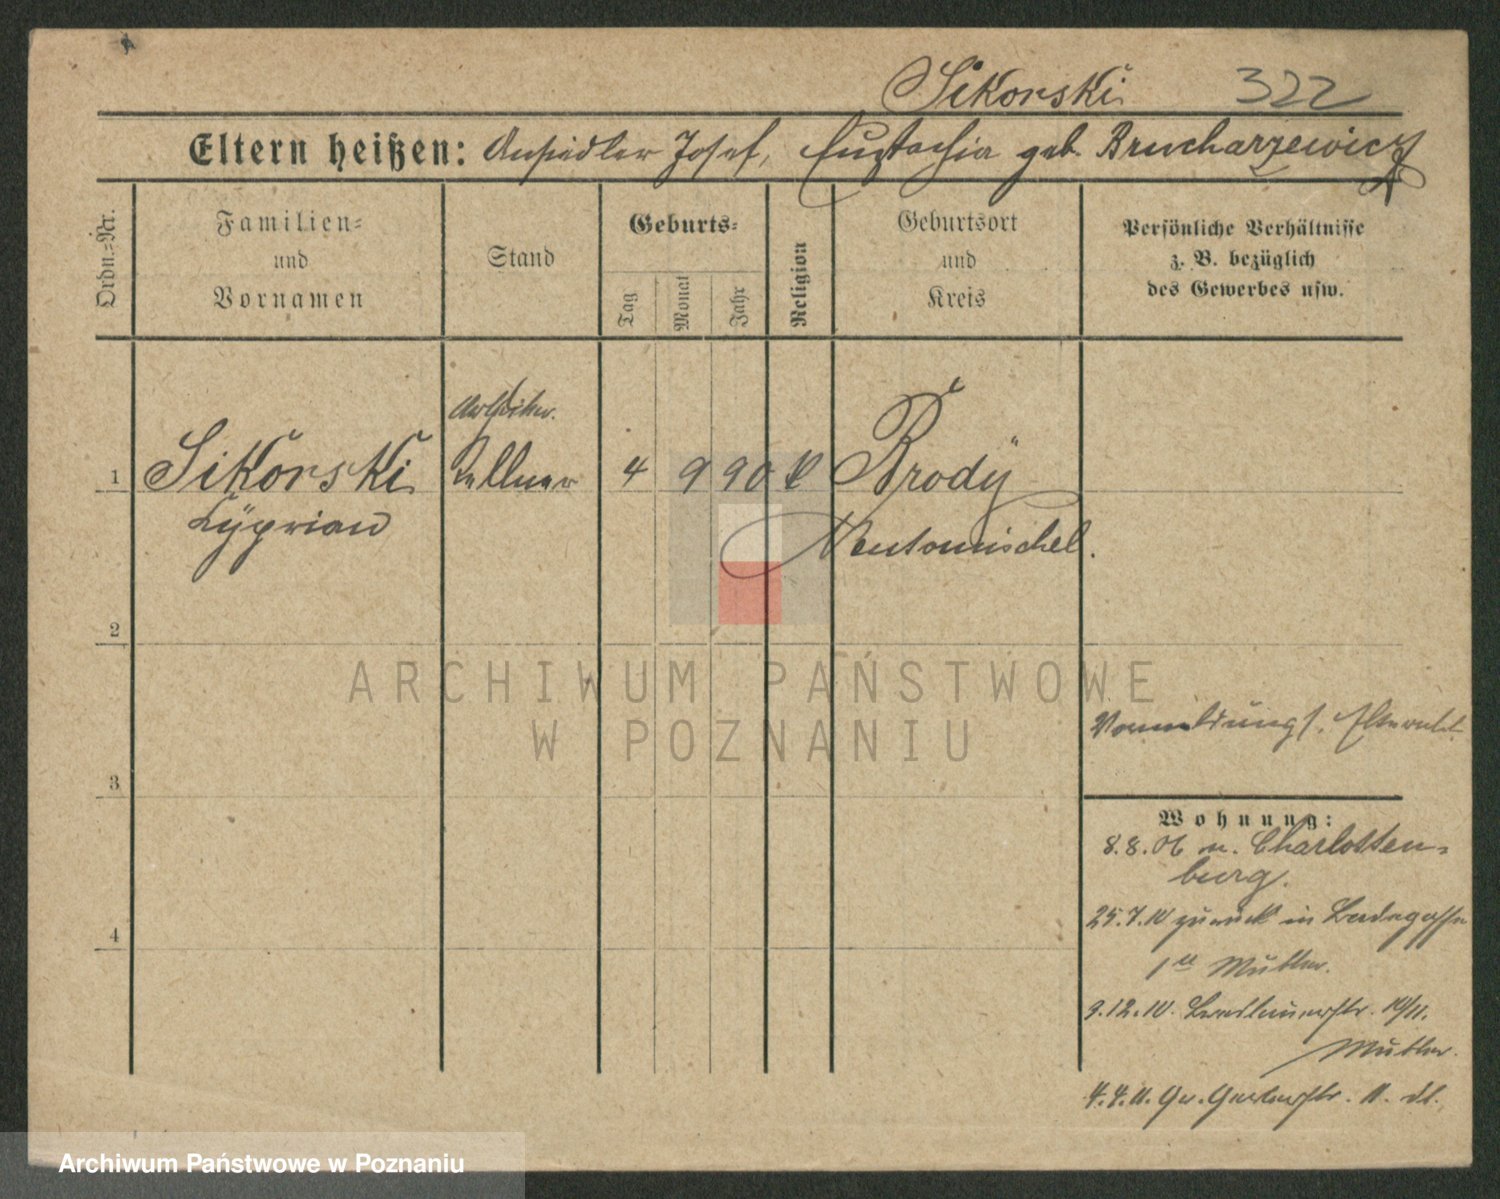 Sikorski 322
Eltern heißen: Ansiedler Josef, Eustachia geb. Brucharzewicz
Ordn.-Nr.
Familien-
und
Vornamen
Stand
Geburts-
Tag
Monat
Jahr
Religion
Geburtsort
und
Kreis
Persönliche Verhältnisse
z. B. bezüglich
des Gewerbes usw.
1 Sikorski Kellner 4 9 90 k Brody
Cyprian Neutomischel.
2
3
4
Wohnung:
8.8.06 n. Charlotten-
burg.
25.7.10 zurück in
Mutter.
9.12.10. 10/11.
Mutter.
4.4.11. Gr. Gerberstr. 11.
ARCHIWUM PAŃSTWOWE
W POZNANIU
Archiwum Państwowe w Poznaniu